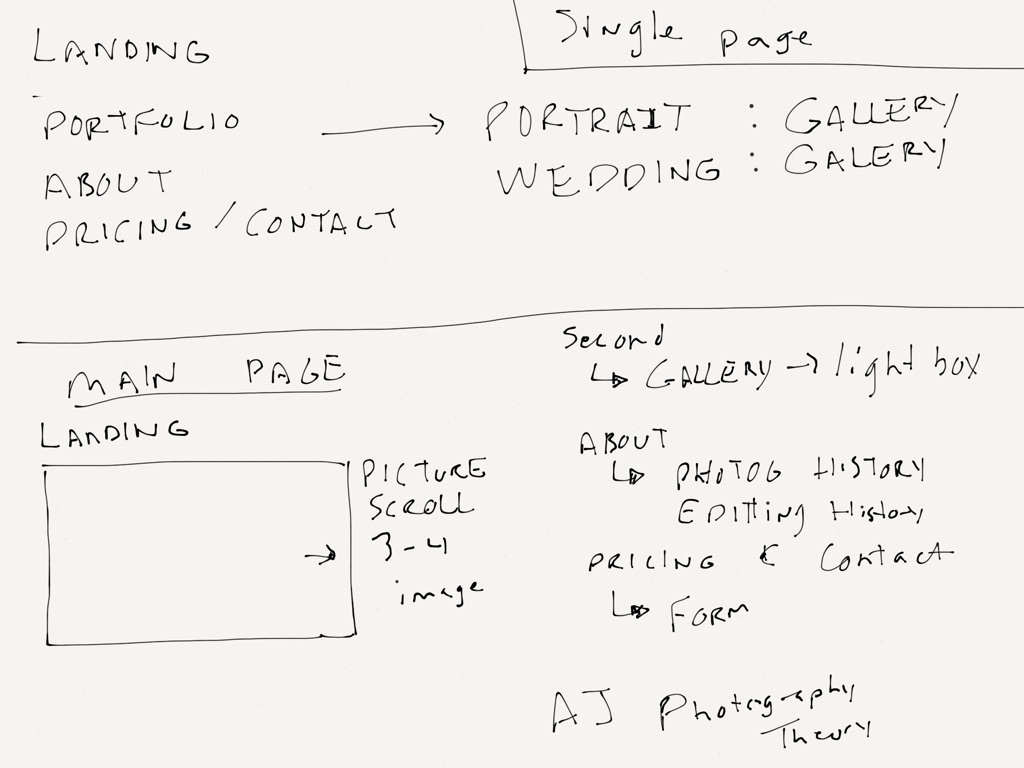 LANDING
Single page
PORTFOLIO → PORTRAIT : GALLERY
WEDDING : GALERY
ABOUT
PRICING / CONTACT
MAIN PAGE
LANDING
PICTURE
SCROLL
→ 3-4
image
Second
↳ GALLERY → light box
ABOUT
↳ PHOTOG HISTORY
EDITTING HISTORY
PRICING & Contact
↳ FORM
AJ Photography
Theory